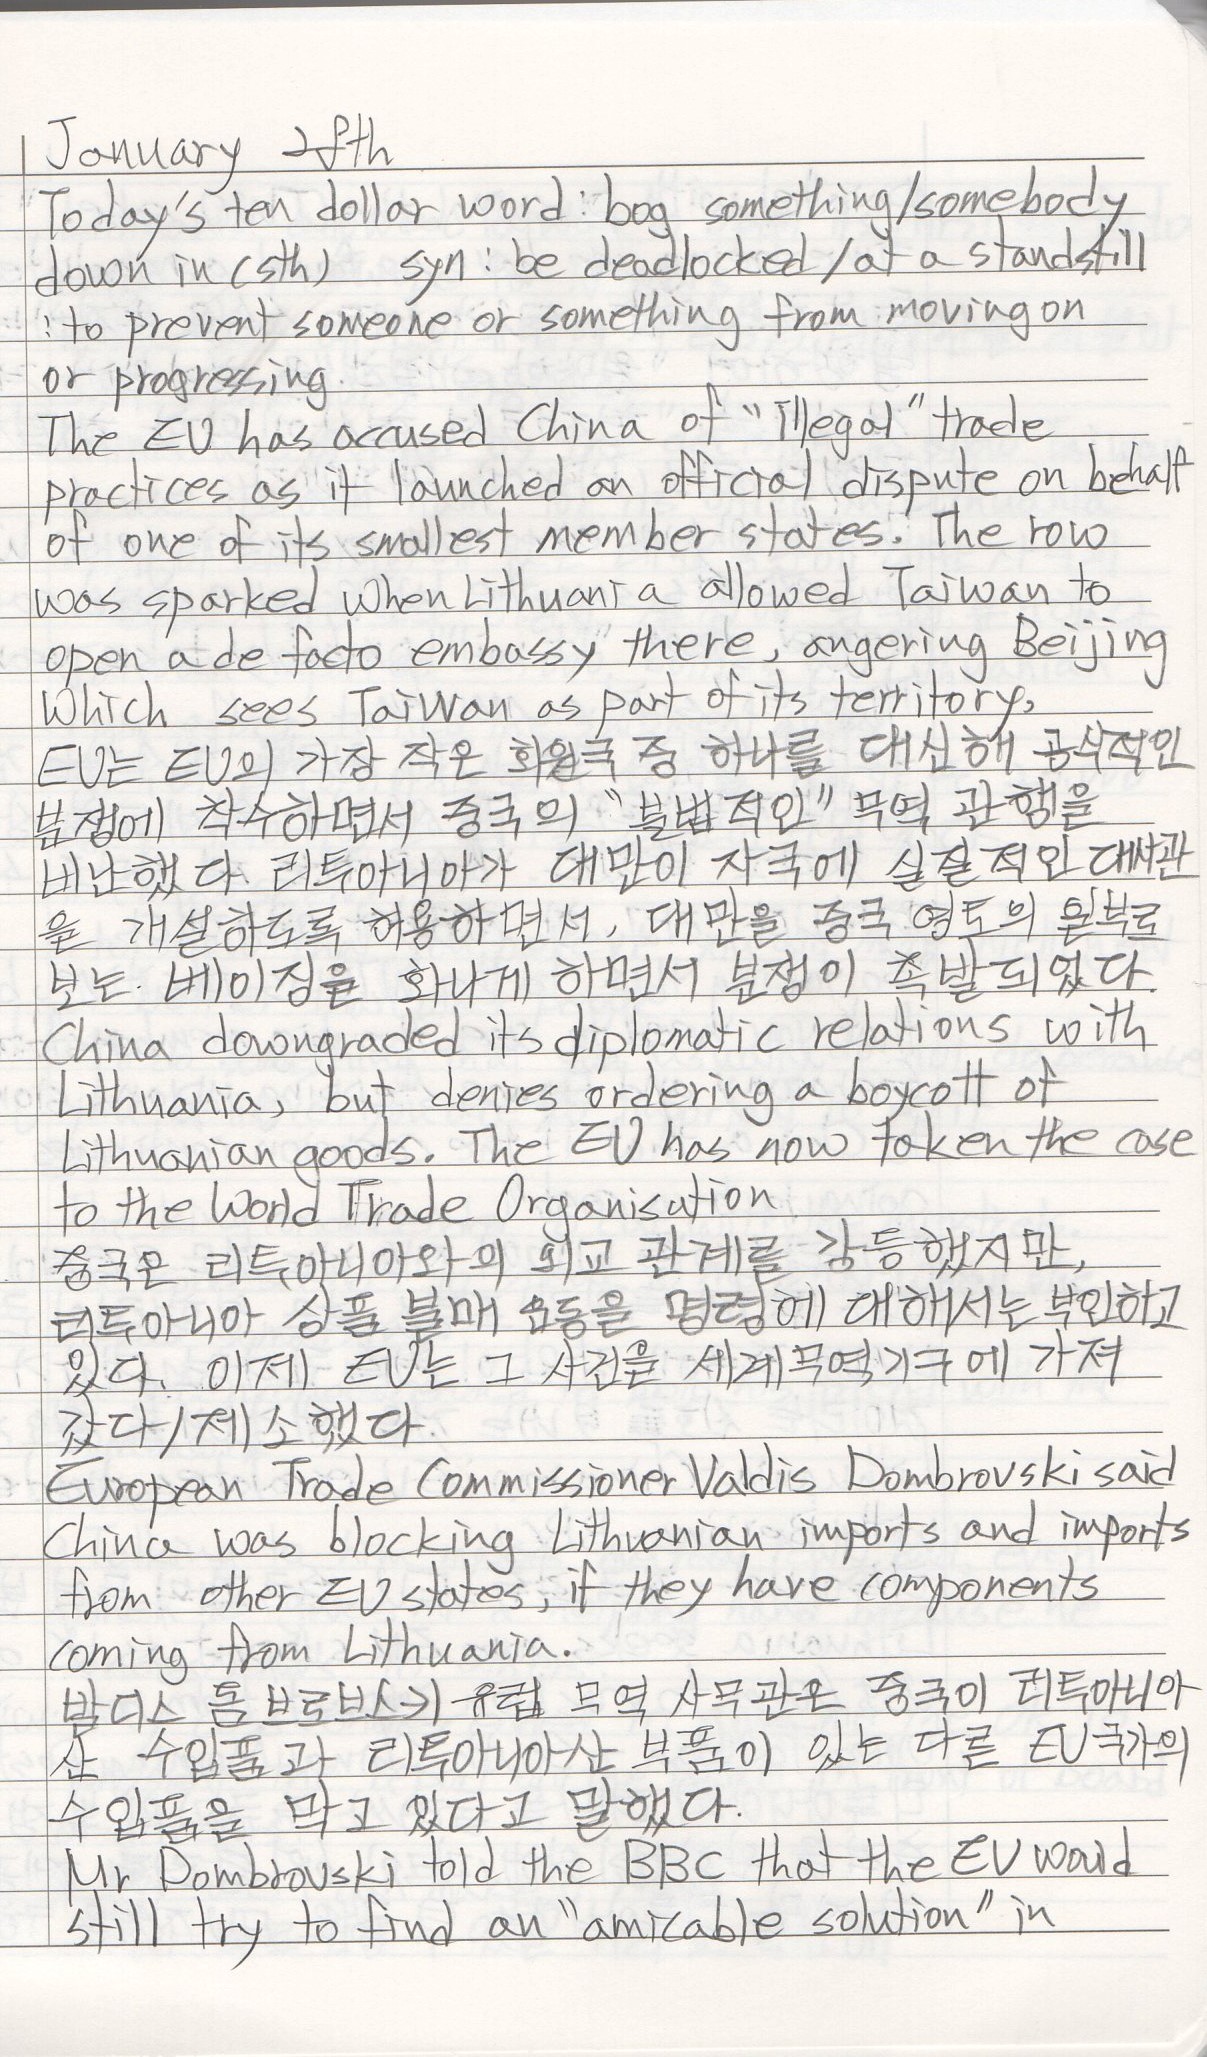 January 28th
Today's ten dollar word : bog something/somebody
down in (sth) syn : be deadlocked / at a standstill
: to prevent someone or something from moving on
or progressing.
The EU has accused China of "illegal" trade
practices as it launched an official dispute on behalf
of one of its smallest member states. The row
was sparked when Lithuania allowed Taiwan to
open a de facto embassy there, angering Beijing
Which sees Taiwan as part of its territory,
EU는 EU의 가장 작은 회원국 중 하나를 대신해 공식적인
분쟁에 착수하면서 중국의 "불법적인" 무역 관행을
비난했다. 리투아니아가 대만이 자국에 실질적인 대사관
을 개설하도록 허용하면서, 대만을 중국 영토의 일부로
보는 베이징을 화나게 하면서 분쟁이 촉발되었다.
China downgraded its diplomatic relations with
Lithuania, but denies ordering a boycott of
Lithuanian goods. The EU has now taken the case
to the World Trade Organisation
중국은 리투아니아와의 외교 관계를 강등했지만,
리투아니아 상품 불매 운동을 명령에 대해서는 부인하고
있다. 이제 EU는 그 사건을 세계무역기구에 가져
갔다/제소했다.
European Trade Commissioner Valdis Dombrovski said
China was blocking Lithuanian imports and imports
from other EU states, if they have components
coming from Lithuania.
발디스 돔브로브스키 유럽 무역 사무관은 중국이 리투아니아
산 수입품과 리투아니아산 부품이 있는 다른 EU국가의
수입품을 막고 있다고 말했다.
Mr Dombrovski told the BBC that the EU would
still try to find an "amicable solution" in